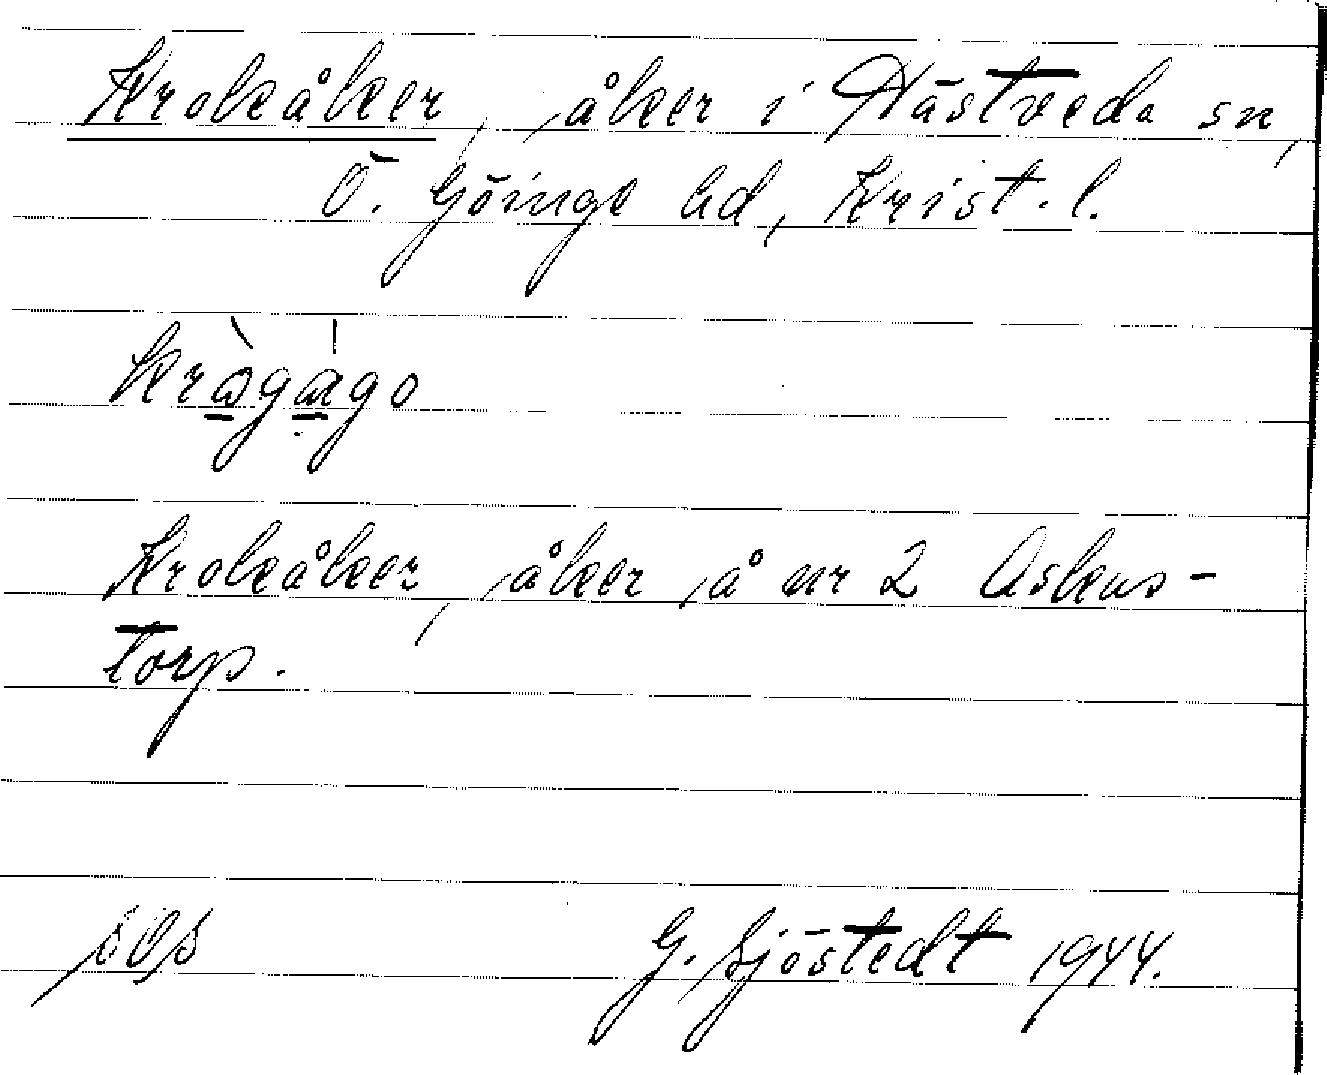 Krokåker, åker i Hästveda sn,
Ö. Göinge hd, Krist. l.
krògágo
Krokåker, åker å nr 2 Askens-
torp.
G. Sjöstedt 1944.